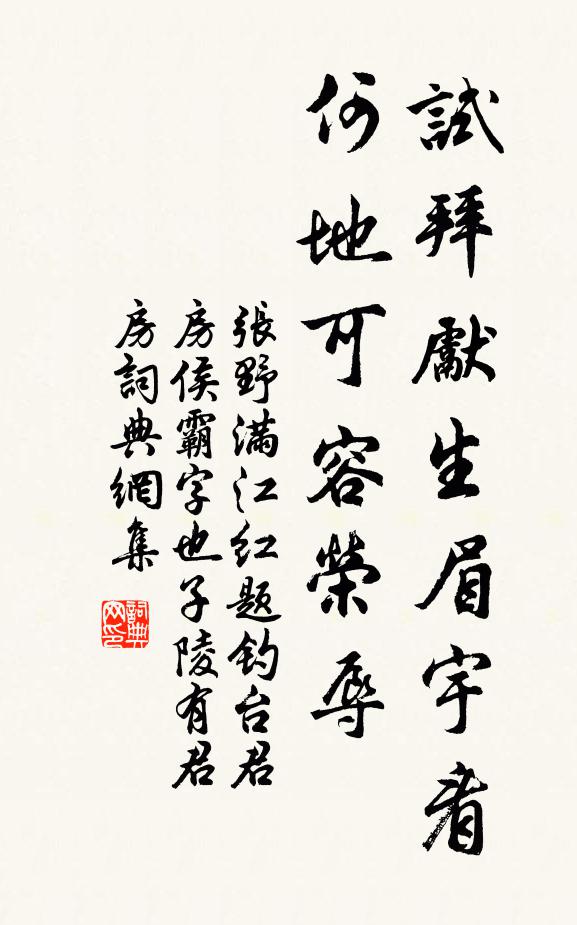 試拜獻生眉宇看
何地可容榮辱
張野滿江紅題釣台君
房侯霸字也子陵有君
房詞典網集
詞典
网印